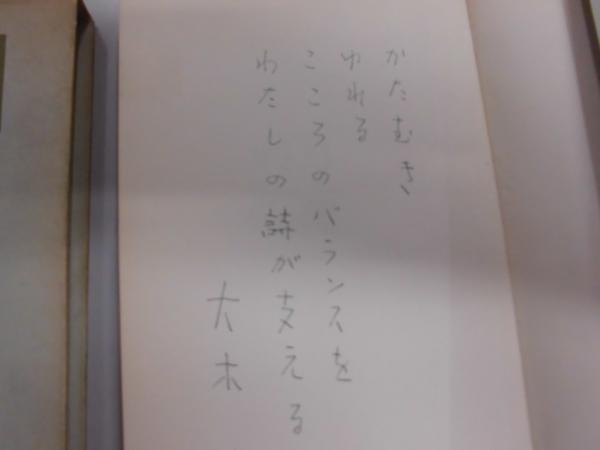 かたむき
ゆれる
こころのバランスを
わたしの詩が支える
大木